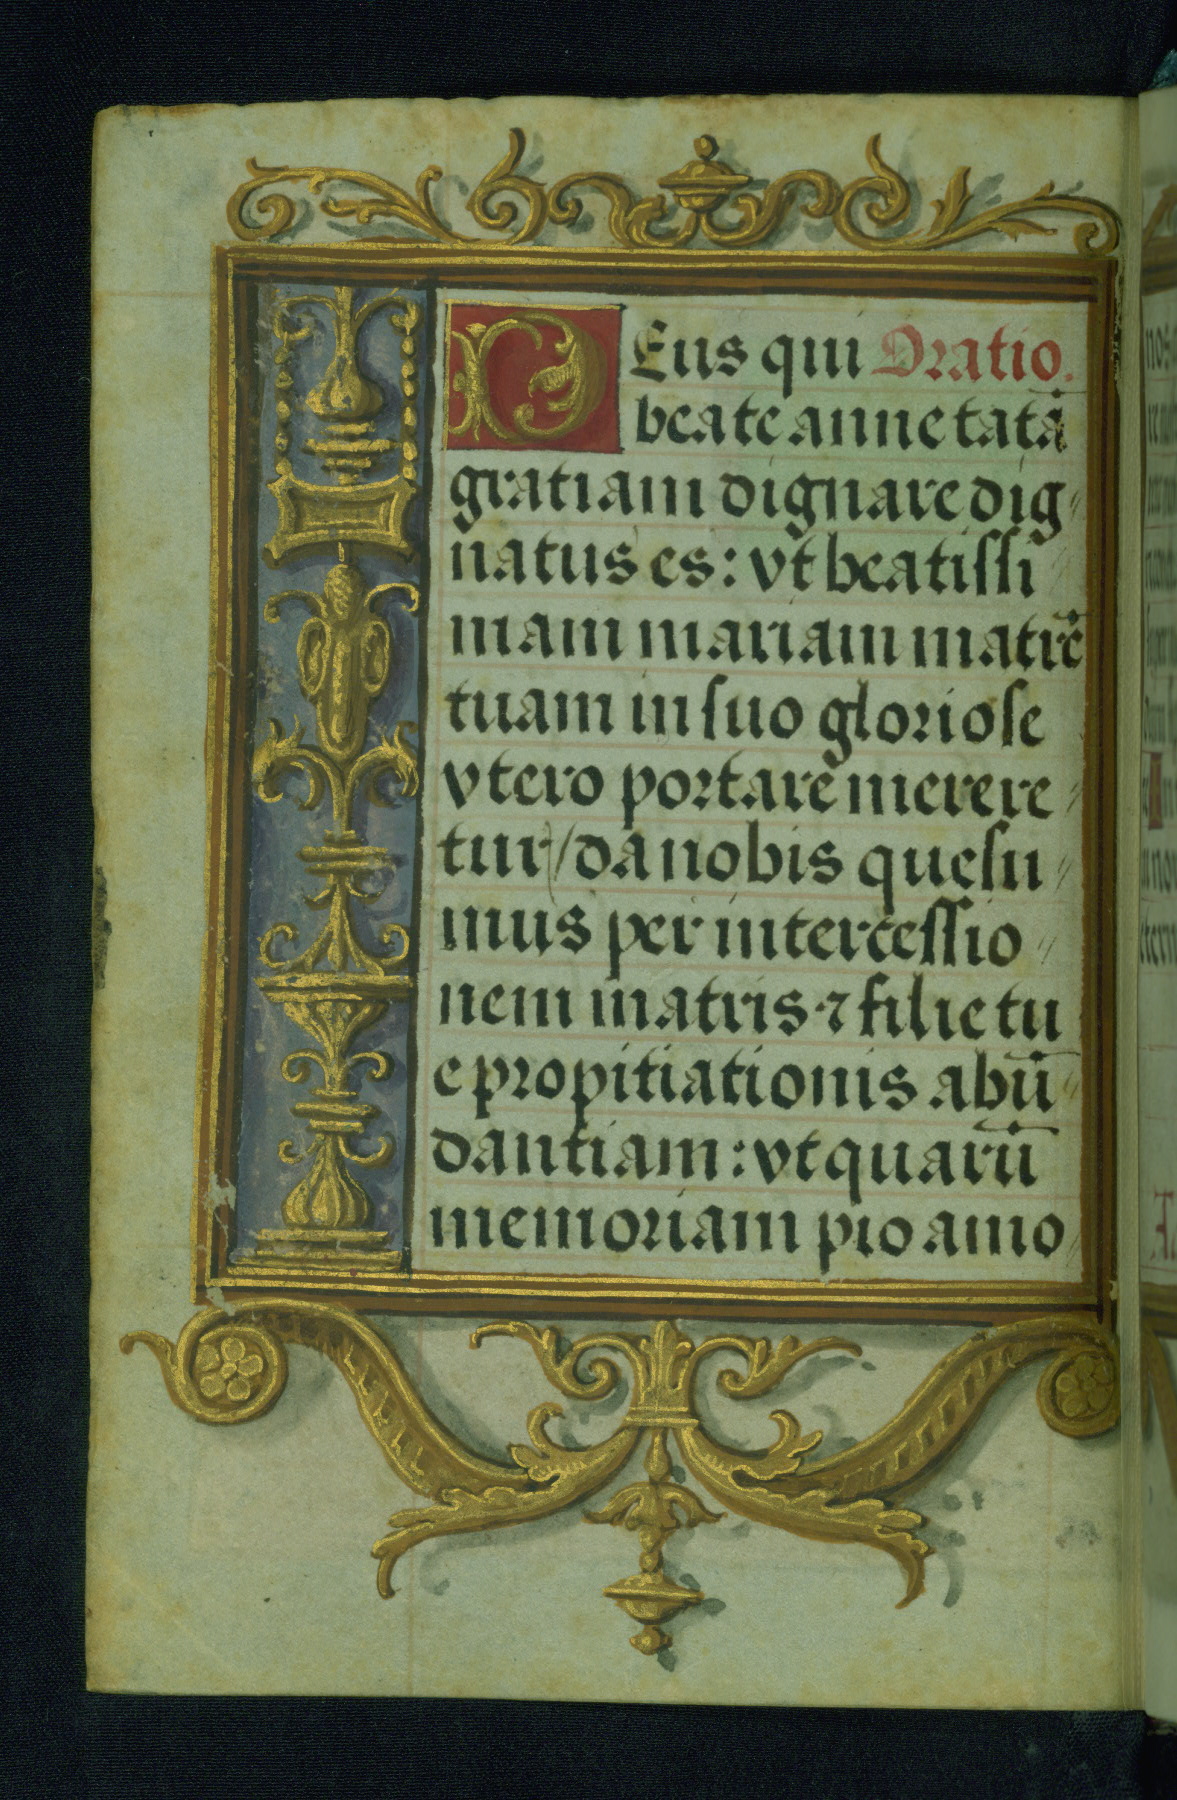 DEus qui Oratio.
beate anne tatā
gratiam dignare dig
natus es: vt beatissi
mam mariam matrē
tuam in suo gloriose
vtero portare merere
tur/ da nobis quesu
mus per intercessio
nem matris ⁊ filie tu
e propitiationis abū
dantiam: vt quarū
memoriam pio amo